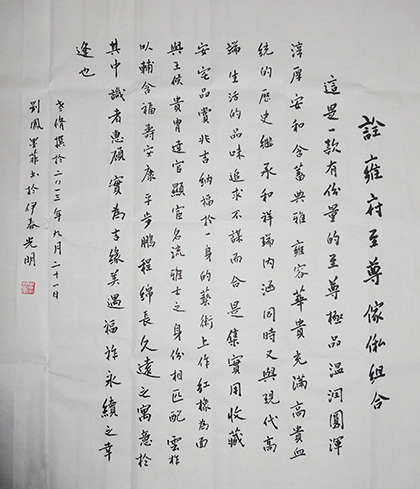 詮雍府至尊傢俬組合
這是一款有份量的至尊極品溫潤圓渾
淳厚安和含蓄典雅雍容華貴充滿高貴血
統的歷史繼承和祥瑞內涵同時又與現代高
端生活的品味追求不謀而合是集實用收藏
安宅品賞兆吉納福於一身的藝術上作紅橡為面
與王侯貴胄達官顯宦名流雅士之身份相匹配雲杉
以輔含福壽安康平步鵬程綿長久遠之寓意於
其中識者惠顧實為吉緣美遇福祚永續之幸
逢也
撰於二〇一三年九月二十一日
劉鳳墨菲書於伊春光明